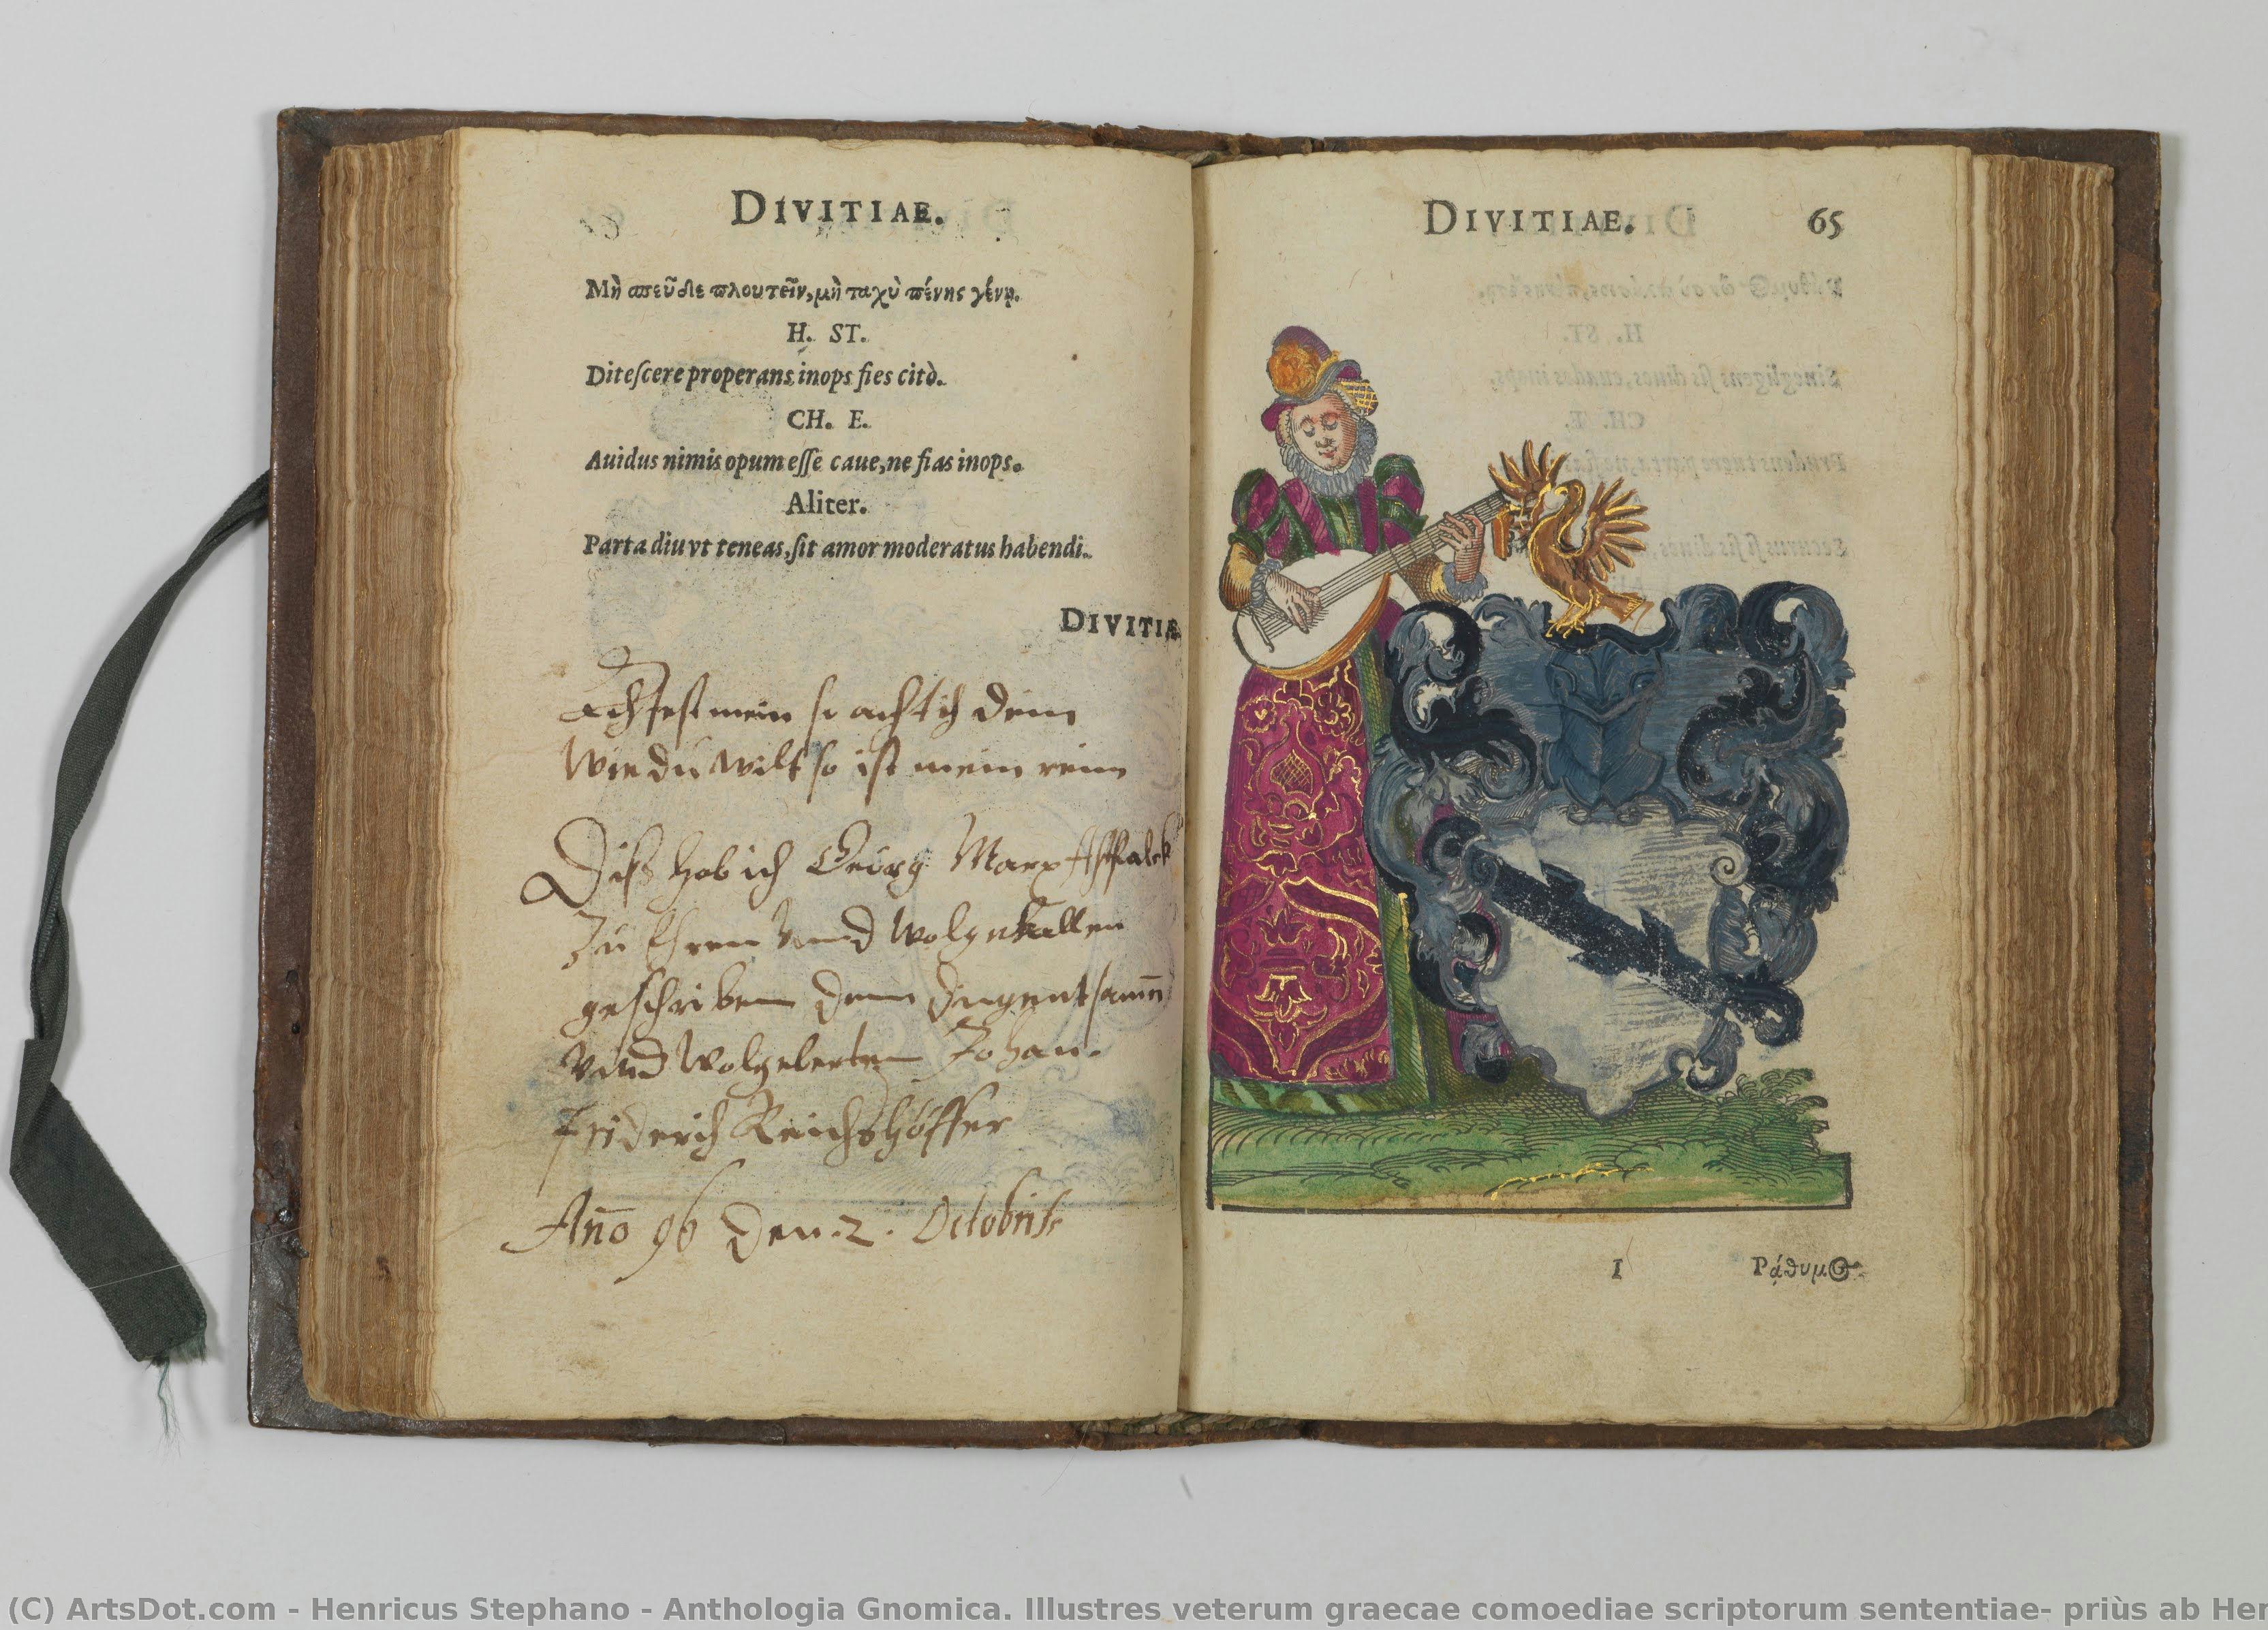 DIVITIAE.
Μὴ σπεῦδε πλουτεῖν, μὴ ταχὺ πένης γένῃ.
H. ST.
Diteſcere properans inops fies citò.
CH. E.
Auidus nimis opum eſſe caue, ne fias inops.
Aliter.
Parta diu vt teneas, ſit amor moderatus habendi.
DIVITIÆ
mein so acht ich dein
Wie du wilt so ist mein
Diß hab ich Georg Marx
Zu Ehren vnnd wolgefallen
geschriben dem
vnnd Wolgelerten Johan.
Friderich Reichshöffer
Año 96 den. 2. Octobris
DIVITIAE. 65
I Ῥάθυμος
(C) ArtsDot.com - Henricus Stephano - Anthologia Gnomica. Illustres veterum graecae comoediae scriptorum sententiae- priùs ab Her